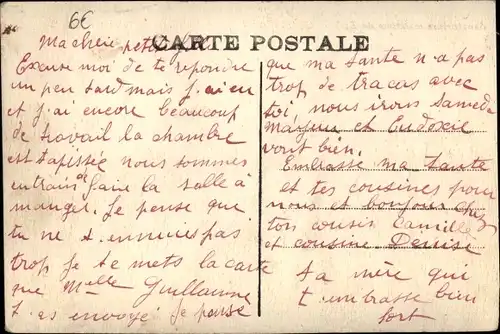 6€
CARTE POSTALE
Ma cheie petite
Excuse moi de te repondre
un peu tard mais j'ai eu
et j'ai encore beaucoup
de travail la chambre
est tapissée nous sommes
entrain de faire la salle à
manger. Je pense que
tu ne t. ennuies pas
trop Je te mets la carte
que Melle Guillaume
t. as envoyé Je pense
que ma tante n a pas
trop de tracas avec
toi nous irons samedi
et Eudoxie
voir bien.
Embrasse ma tante
et tes cousines pour
nous et bonjour chez
ton cousin Camille
et cousine Denise
ta mère qui
t embrasse bien
fort